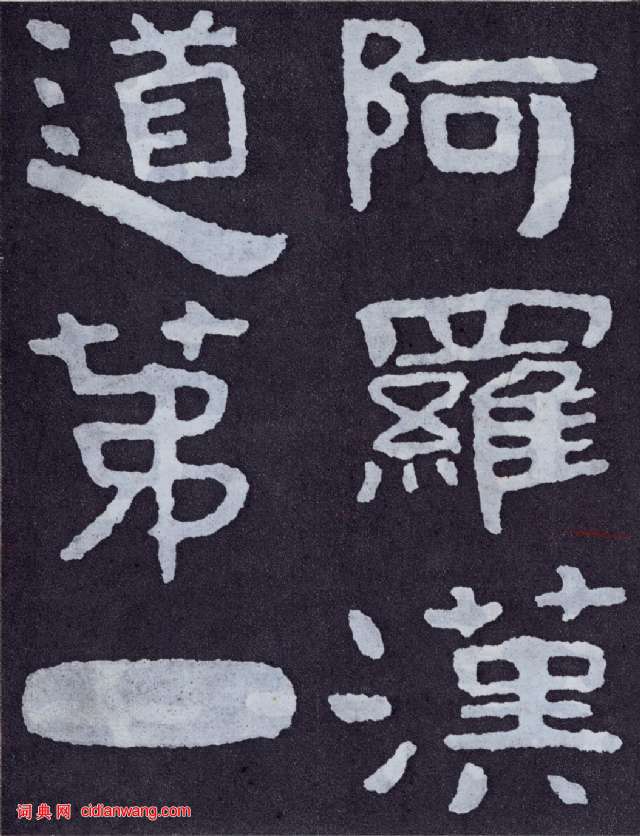 阿羅漢
道苐一
词典网 cidianwang.com